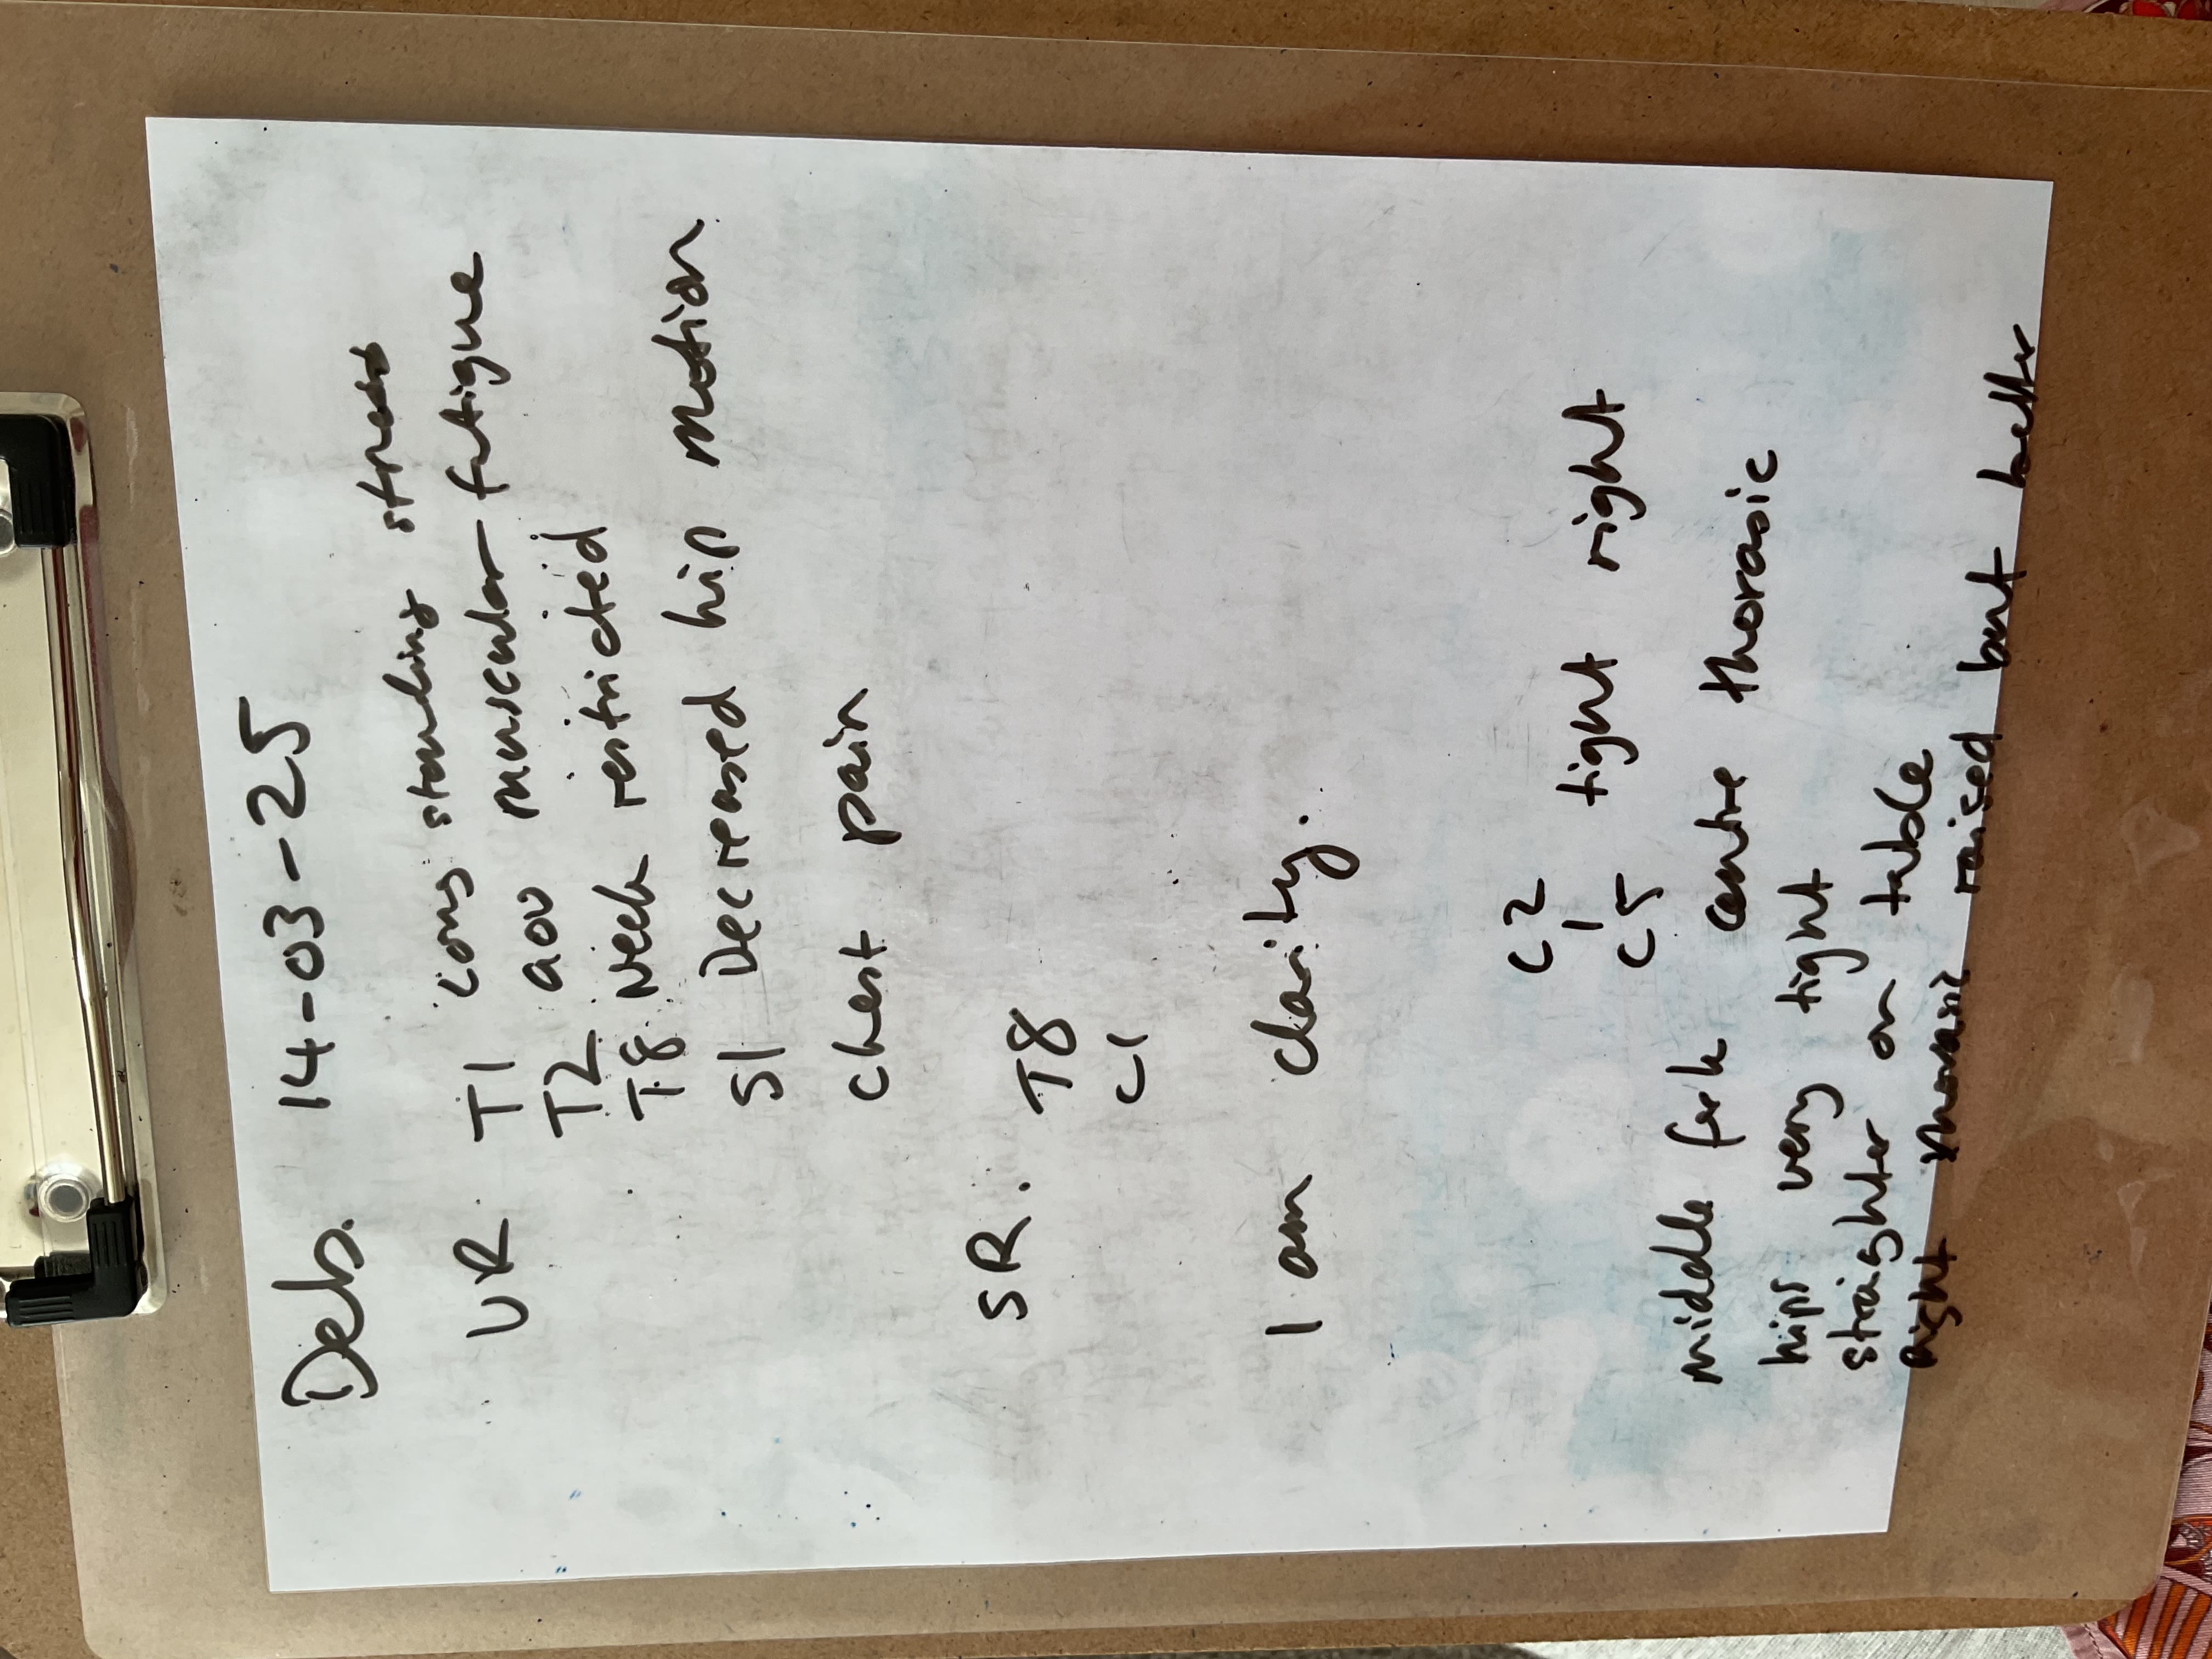 Deb. 14-03-25
UR T1 long standing stress
T2 aov muscular fatigue
T8 Neck restricted
S1 Decreased hip motion
Chest pain
SR. T8
C1
I am clarity.
C2
| tight right
C5
middle centre thorasic
hips very tight
straighter on table
right thorasic raised but better